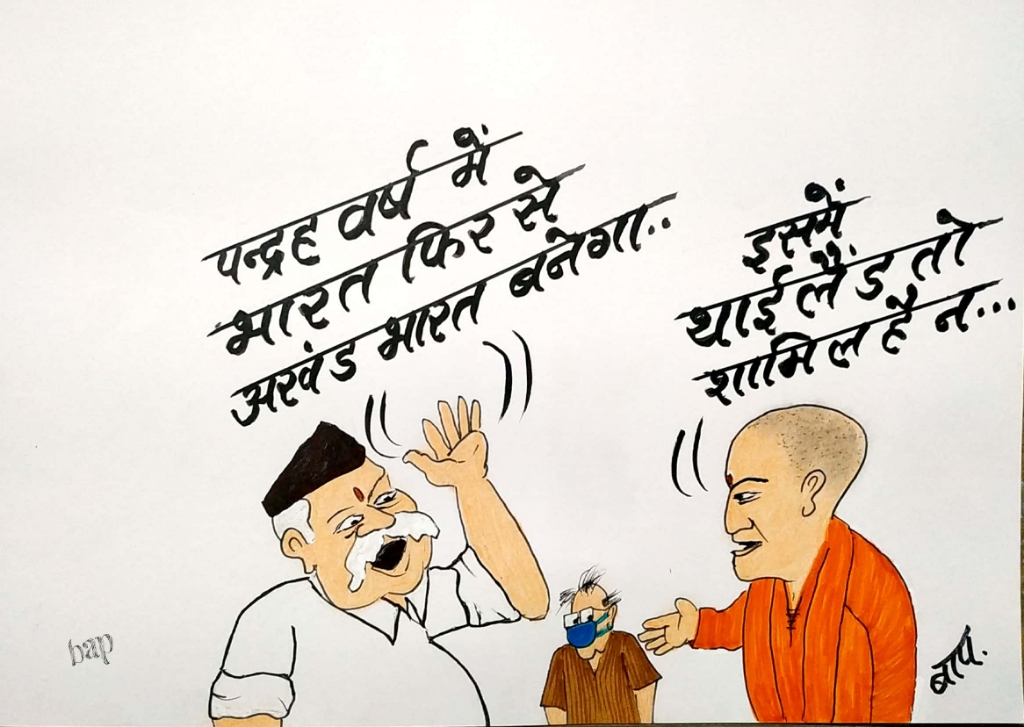 पन्द्रह वर्ष में
भारत फिर से
अखंड भारत बनेगा..
इसमें
थाईलैंड तो
शामिल है न...
bap
बाप.